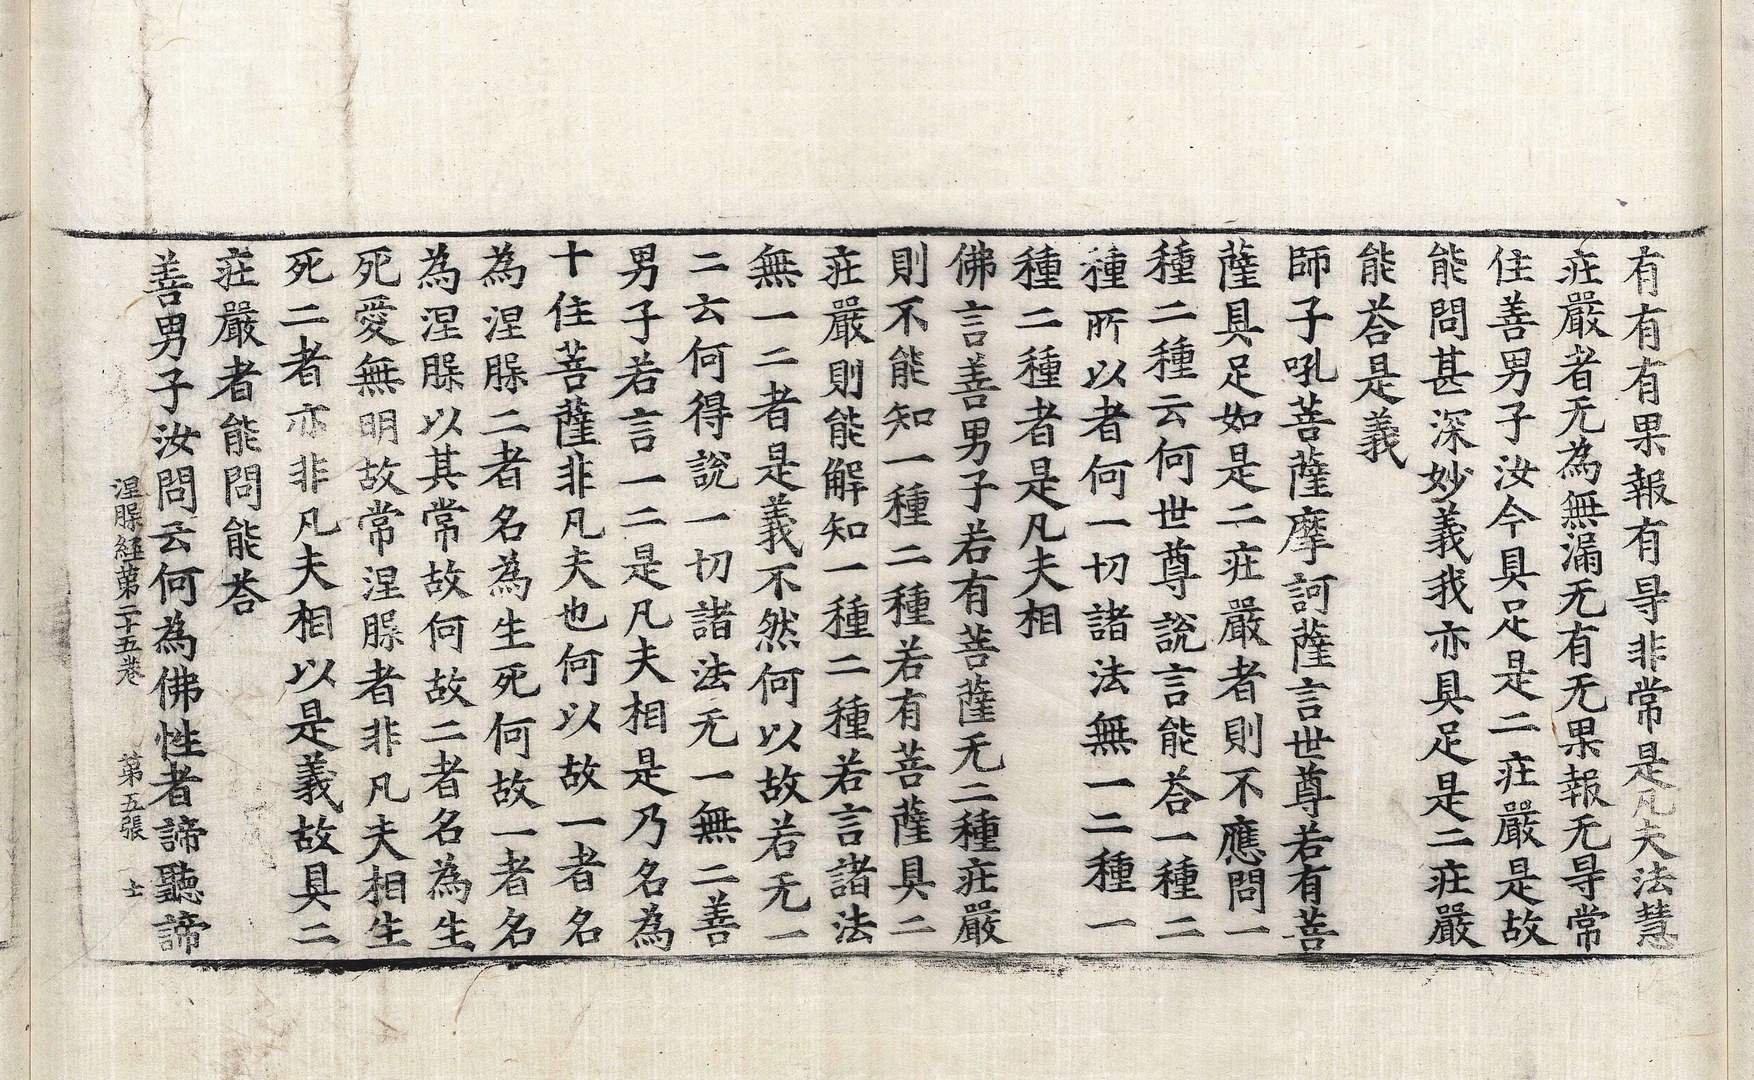 有有有果報有㝵非常是凡夫法慧
庒嚴者无為無漏无有无果報无㝵常
住善男子汝今具足是二庒嚴是故
能問甚深妙義我亦具足是二庒嚴
能荅是義
師子吼菩薩摩訶薩言世尊若有菩
薩具足如是二庒嚴者則不應問一
種二種云何世尊說言能荅一種二
種所以者何一切諸法無一二種一
種二種者是凡夫相
佛言善男子若有菩薩无二種庒嚴
則不能知一種二種若有菩薩具二
庒嚴則能解知一種二種若言諸法
無一二者是義不然何以故若无一
二云何得說一切諸法无一無二善
男子若言一二是凡夫相是乃名為
十住菩薩非凡夫也何以故一者名
為涅槃二者名為生死何故一者名
為涅槃以其常故何故二者名為生
死愛無明故常涅槃者非凡夫相生
死二者亦非凡夫相以是義故具二
庒嚴者能問能荅
善男子汝問云何為佛性者諦聽諦
涅槃經第二十五卷 第五張 士